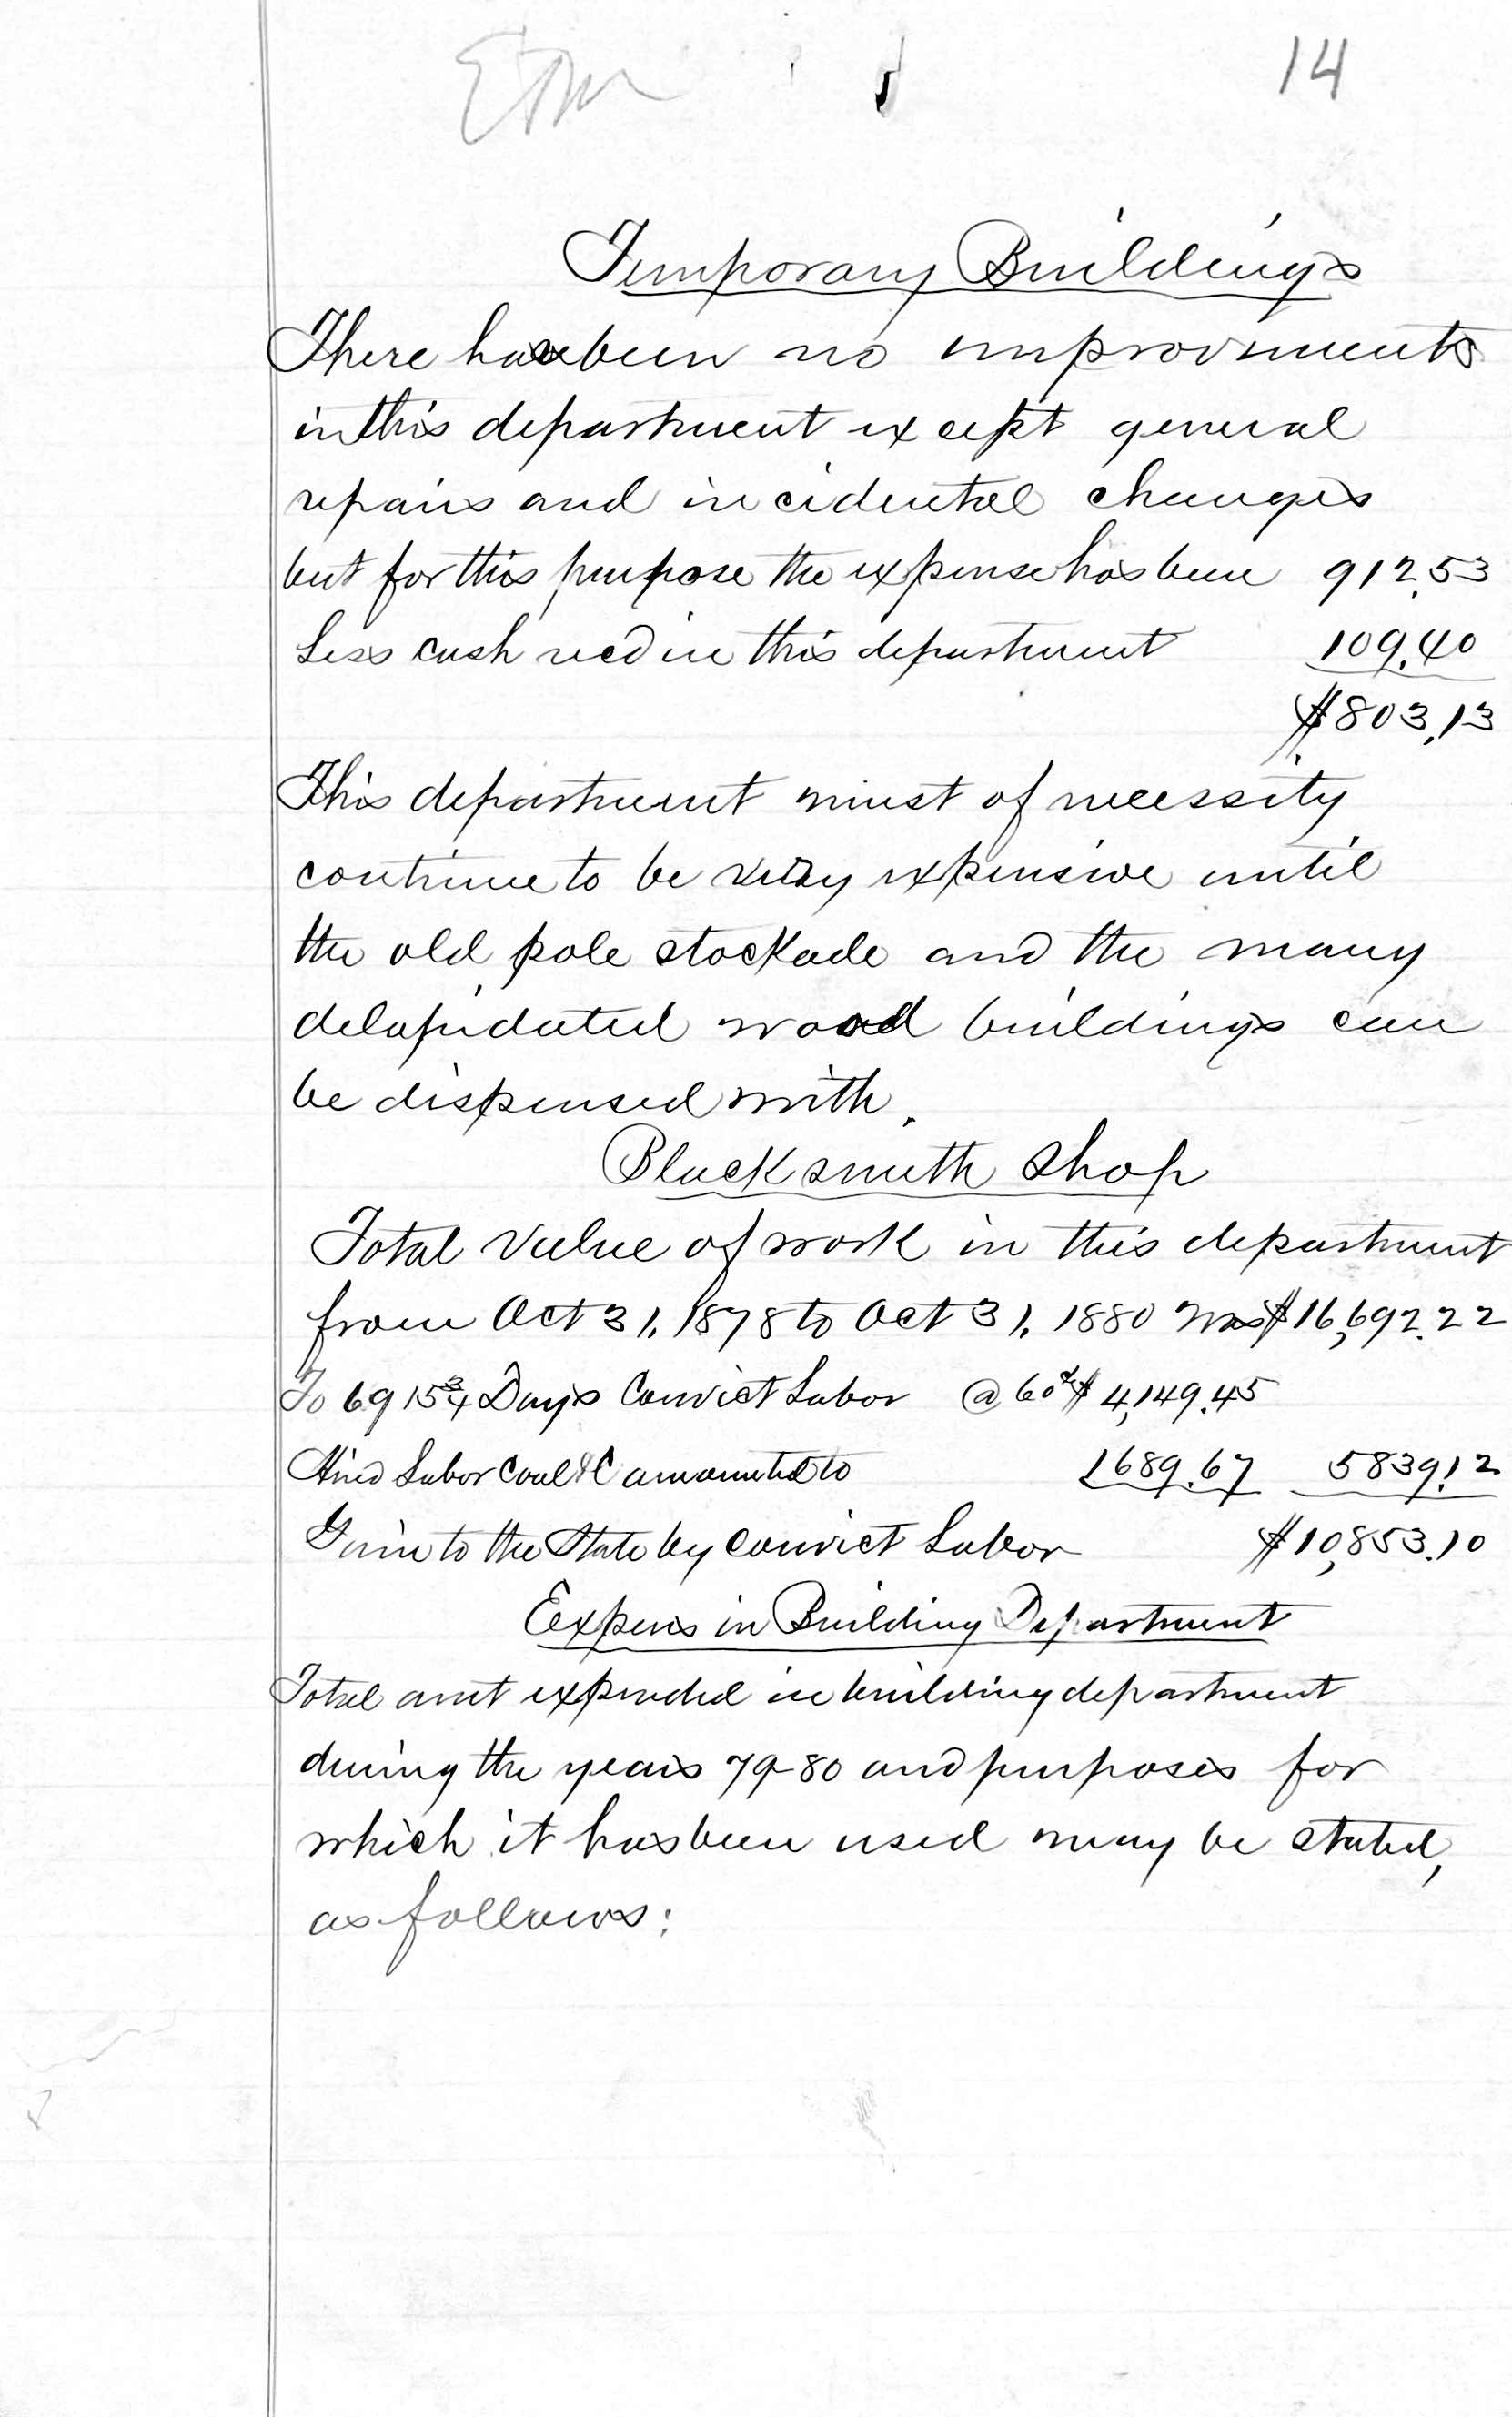 14
Temporary Buildings
There have been no improvments
in this department except general
repairs and incidental changes
but for this purpose the expense has been 912.53
Less cash recd in this department 109.40
$803.13
This department must of necessity
continue to be very expensive until
the old pole stockade and the many
delapidated wood buildings can
be dispensed with.
Blacksmith Shop
Total value of work in this department
from Oct 31, 1878 to Oct 31, 1880 was $16,692.22
To 6915 3/4 Days Convict Labor @ 60¢ $4,149.45
Hired Labor Coal &C amounted to 1689.67 5839.12
Gain to the State by convict Labor $10,853.10
Expens in Building Department
Total amt expended in building department
during the years 79-80 and purposes for
which it has been used may be stated,
as follows: